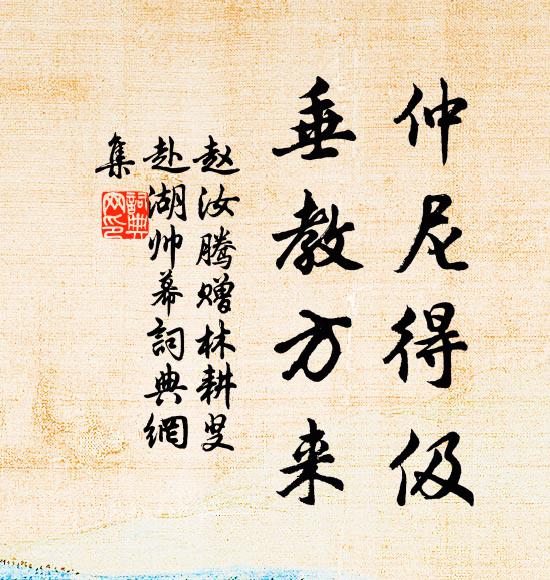 仲尼得伋
垂教方来
赵汝腾赠林耕叟
赴湖帅幕詞典網
集
詞典網印